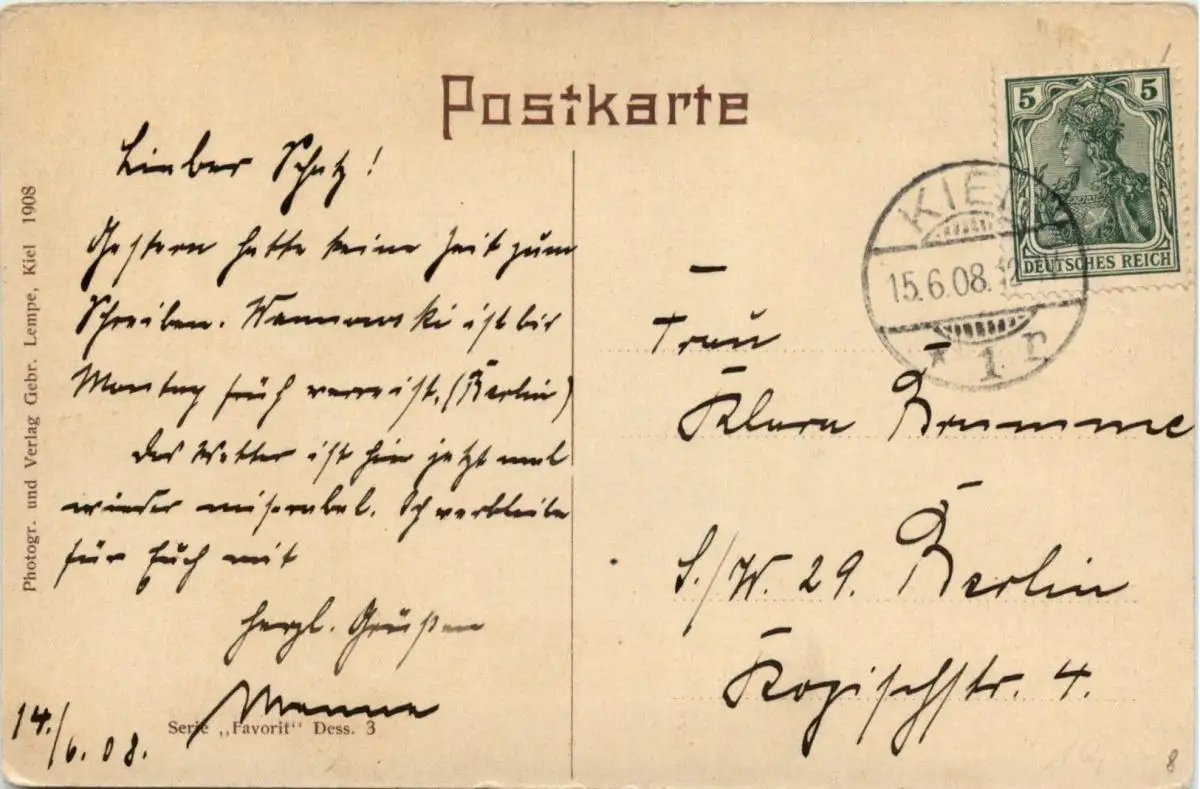 Postkarte
Lieber Schatz!
Gestern hatte keine Zeit zum
Schreiben. Wannowski ist bis
Montag früh verreist. (Berlin)
Das Wetter ist hier jetzt mal
wieder miserabel. Ich verbleibe
für Euch mit
herzl. Grüßen
14./6.08.
Serie „Favorit“ Dess. 3
Photogr. und Verlag Gebr. Lempe, Kiel 1908
5 5
DEUTSCHES REICH
KIEL
15.6.08. 12
* 1 r
Frau
Klara Brumme
S./W. 29. Berlin
4.
8